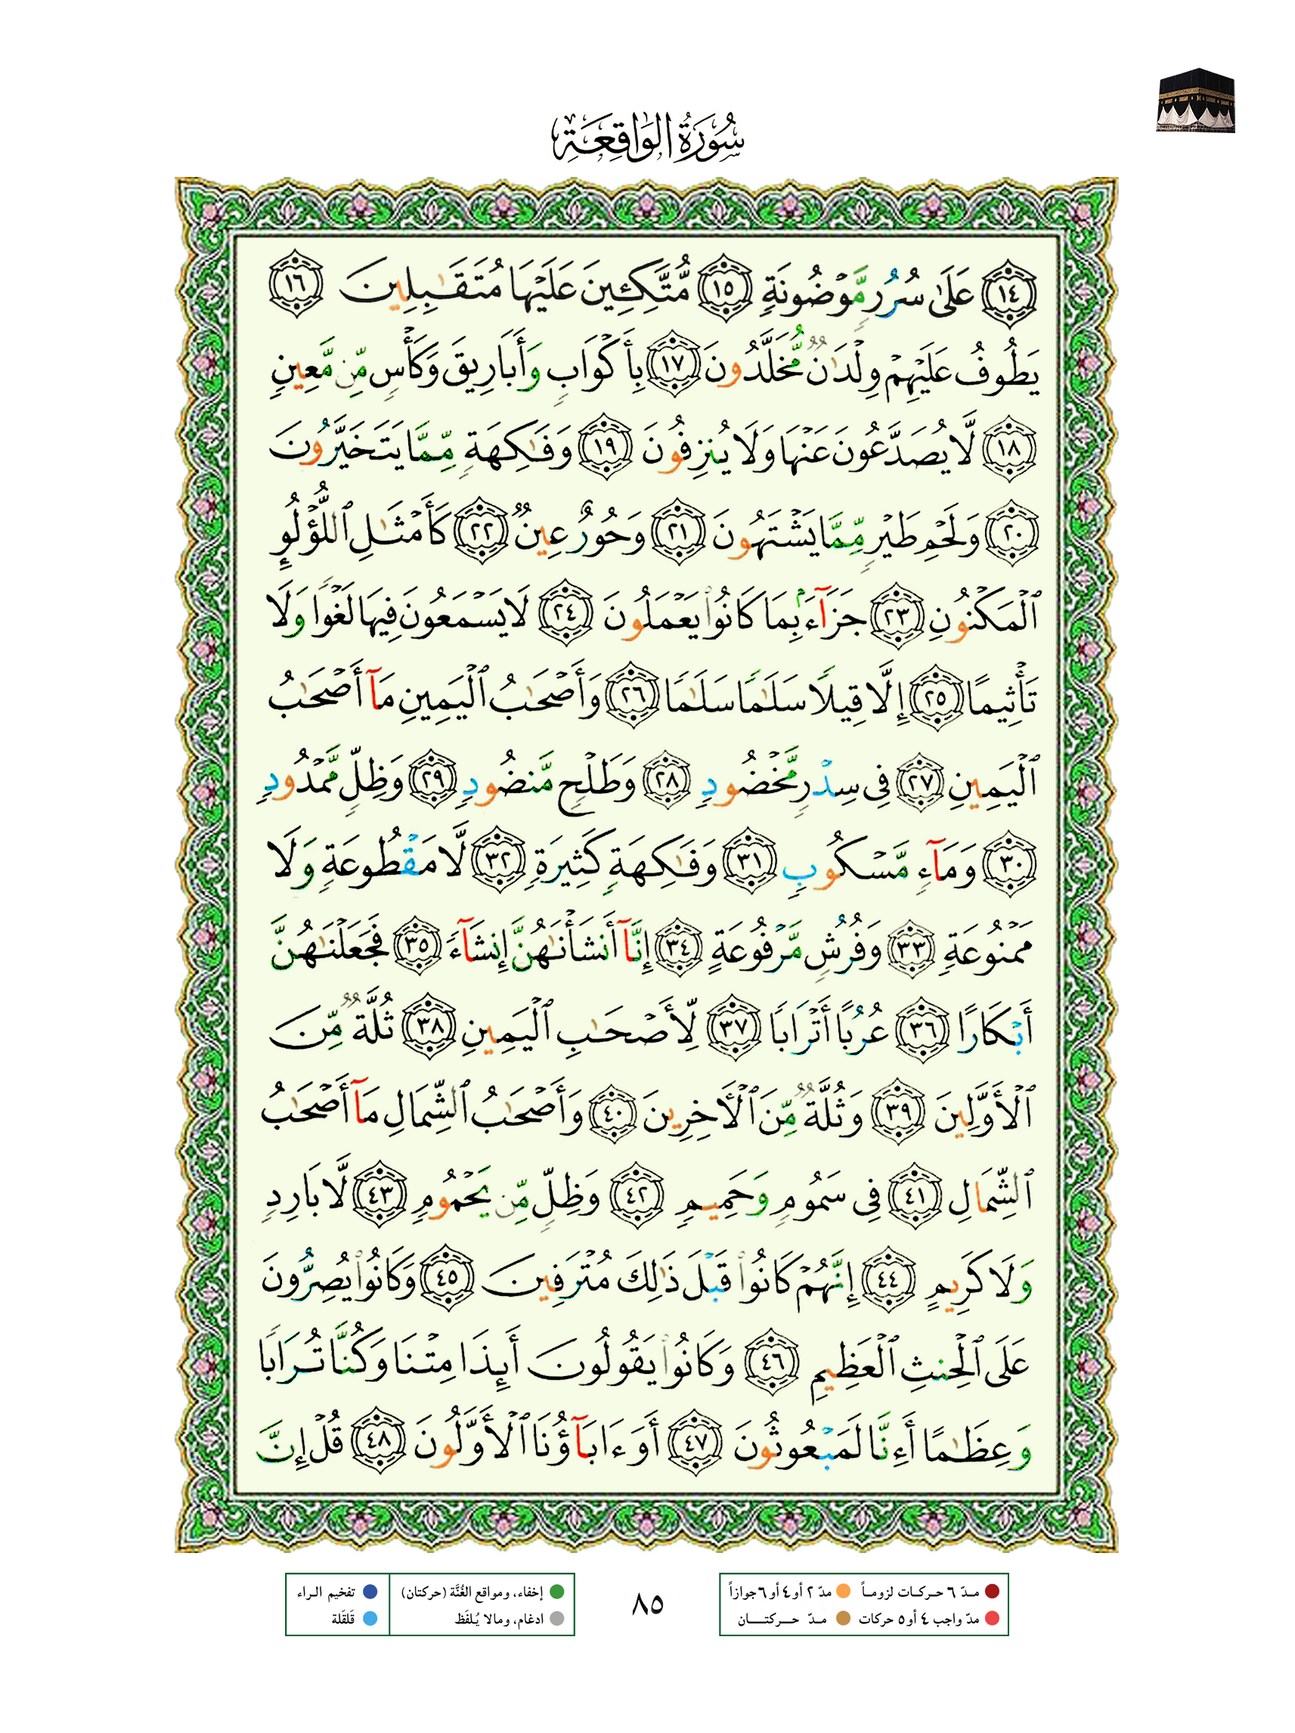 سُورَةُ الوَاقِعَة
﴿١٤﴾ عَلَىٰ سُرُرٍ مَّوْضُونَةٍ ﴿١٥﴾ مُّتَّكِـِٔينَ عَلَيْهَا مُتَقَـٰبِلِينَ ﴿١٦﴾
يَطُوفُ عَلَيْهِمْ وِلْدَٰنٌ مُّخَلَّدُونَ ﴿١٧﴾ بِأَكْوَابٍ وَأَبَارِيقَ وَكَأْسٍ مِّن مَّعِينٍ
﴿١٨﴾ لَّا يُصَدَّعُونَ عَنْهَا وَلَا يُنزِفُونَ ﴿١٩﴾ وَفَـٰكِهَةٍ مِّمَّا يَتَخَيَّرُونَ
﴿٢٠﴾ وَلَحْمِ طَيْرٍ مِّمَّا يَشْتَهُونَ ﴿٢١﴾ وَحُورٌ عِينٌ ﴿٢٢﴾ كَأَمْثَـٰلِ ٱللُّؤْلُوِٕ
ٱلْمَكْنُونِ ﴿٢٣﴾ جَزَآءًۢ بِمَا كَانُوا۟ يَعْمَلُونَ ﴿٢٤﴾ لَا يَسْمَعُونَ فِيهَا لَغْوًا وَلَا
تَأْثِيمًا ﴿٢٥﴾ إِلَّا قِيلًا سَلَـٰمًا سَلَـٰمًا ﴿٢٦﴾ وَأَصْحَـٰبُ ٱلْيَمِينِ مَآ أَصْحَـٰبُ
ٱلْيَمِينِ ﴿٢٧﴾ فِى سِدْرٍ مَّخْضُودٍ ﴿٢٨﴾ وَطَلْحٍ مَّنضُودٍ ﴿٢٩﴾ وَظِلٍّ مَّمْدُودٍ
﴿٣٠﴾ وَمَآءٍ مَّسْكُوبٍ ﴿٣١﴾ وَفَـٰكِهَةٍ كَثِيرَةٍ ﴿٣٢﴾ لَّا مَقْطُوعَةٍ وَلَا
مَمْنُوعَةٍ ﴿٣٣﴾ وَفُرُشٍ مَّرْفُوعَةٍ ﴿٣٤﴾ إِنَّآ أَنشَأْنَـٰهُنَّ إِنشَآءً ﴿٣٥﴾ فَجَعَلْنَـٰهُنَّ
أَبْكَارًا ﴿٣٦﴾ عُرُبًا أَتْرَابًا ﴿٣٧﴾ لِّأَصْحَـٰبِ ٱلْيَمِينِ ﴿٣٨﴾ ثُلَّةٌ مِّنَ
ٱلْأَوَّلِينَ ﴿٣٩﴾ وَثُلَّةٌ مِّنَ ٱلْـَٔاخِرِينَ ﴿٤٠﴾ وَأَصْحَـٰبُ ٱلشِّمَالِ مَآ أَصْحَـٰبُ
ٱلشِّمَالِ ﴿٤١﴾ فِى سَمُومٍ وَحَمِيمٍ ﴿٤٢﴾ وَظِلٍّ مِّن يَحْمُومٍ ﴿٤٣﴾ لَّا بَارِدٍ
وَلَا كَرِيمٍ ﴿٤٤﴾ إِنَّهُمْ كَانُوا۟ قَبْلَ ذَٰلِكَ مُتْرَفِينَ ﴿٤٥﴾ وَكَانُوا۟ يُصِرُّونَ
عَلَى ٱلْحِنثِ ٱلْعَظِيمِ ﴿٤٦﴾ وَكَانُوا۟ يَقُولُونَ أَئِذَا مِتْنَا وَكُنَّا تُرَابًا
وَعِظَـٰمًا أَءِنَّا لَمَبْعُوثُونَ ﴿٤٧﴾ أَوَءَابَآؤُنَا ٱلْأَوَّلُونَ ﴿٤٨﴾ قُلْ إِنَّ
مـدّ ٦ حـركـات لزومـاً مدّ ٢ أو ٤ أو ٦ جوازاً
مدّ واجب ٤ أو ٥ حركات مـدّ حـــركتــــان
٨٥
إخفاء، ومواقع الغُنَّة (حركتان) تفخيم الـراء
ادغام، ومالا يُـلفَظ قَلقَلة